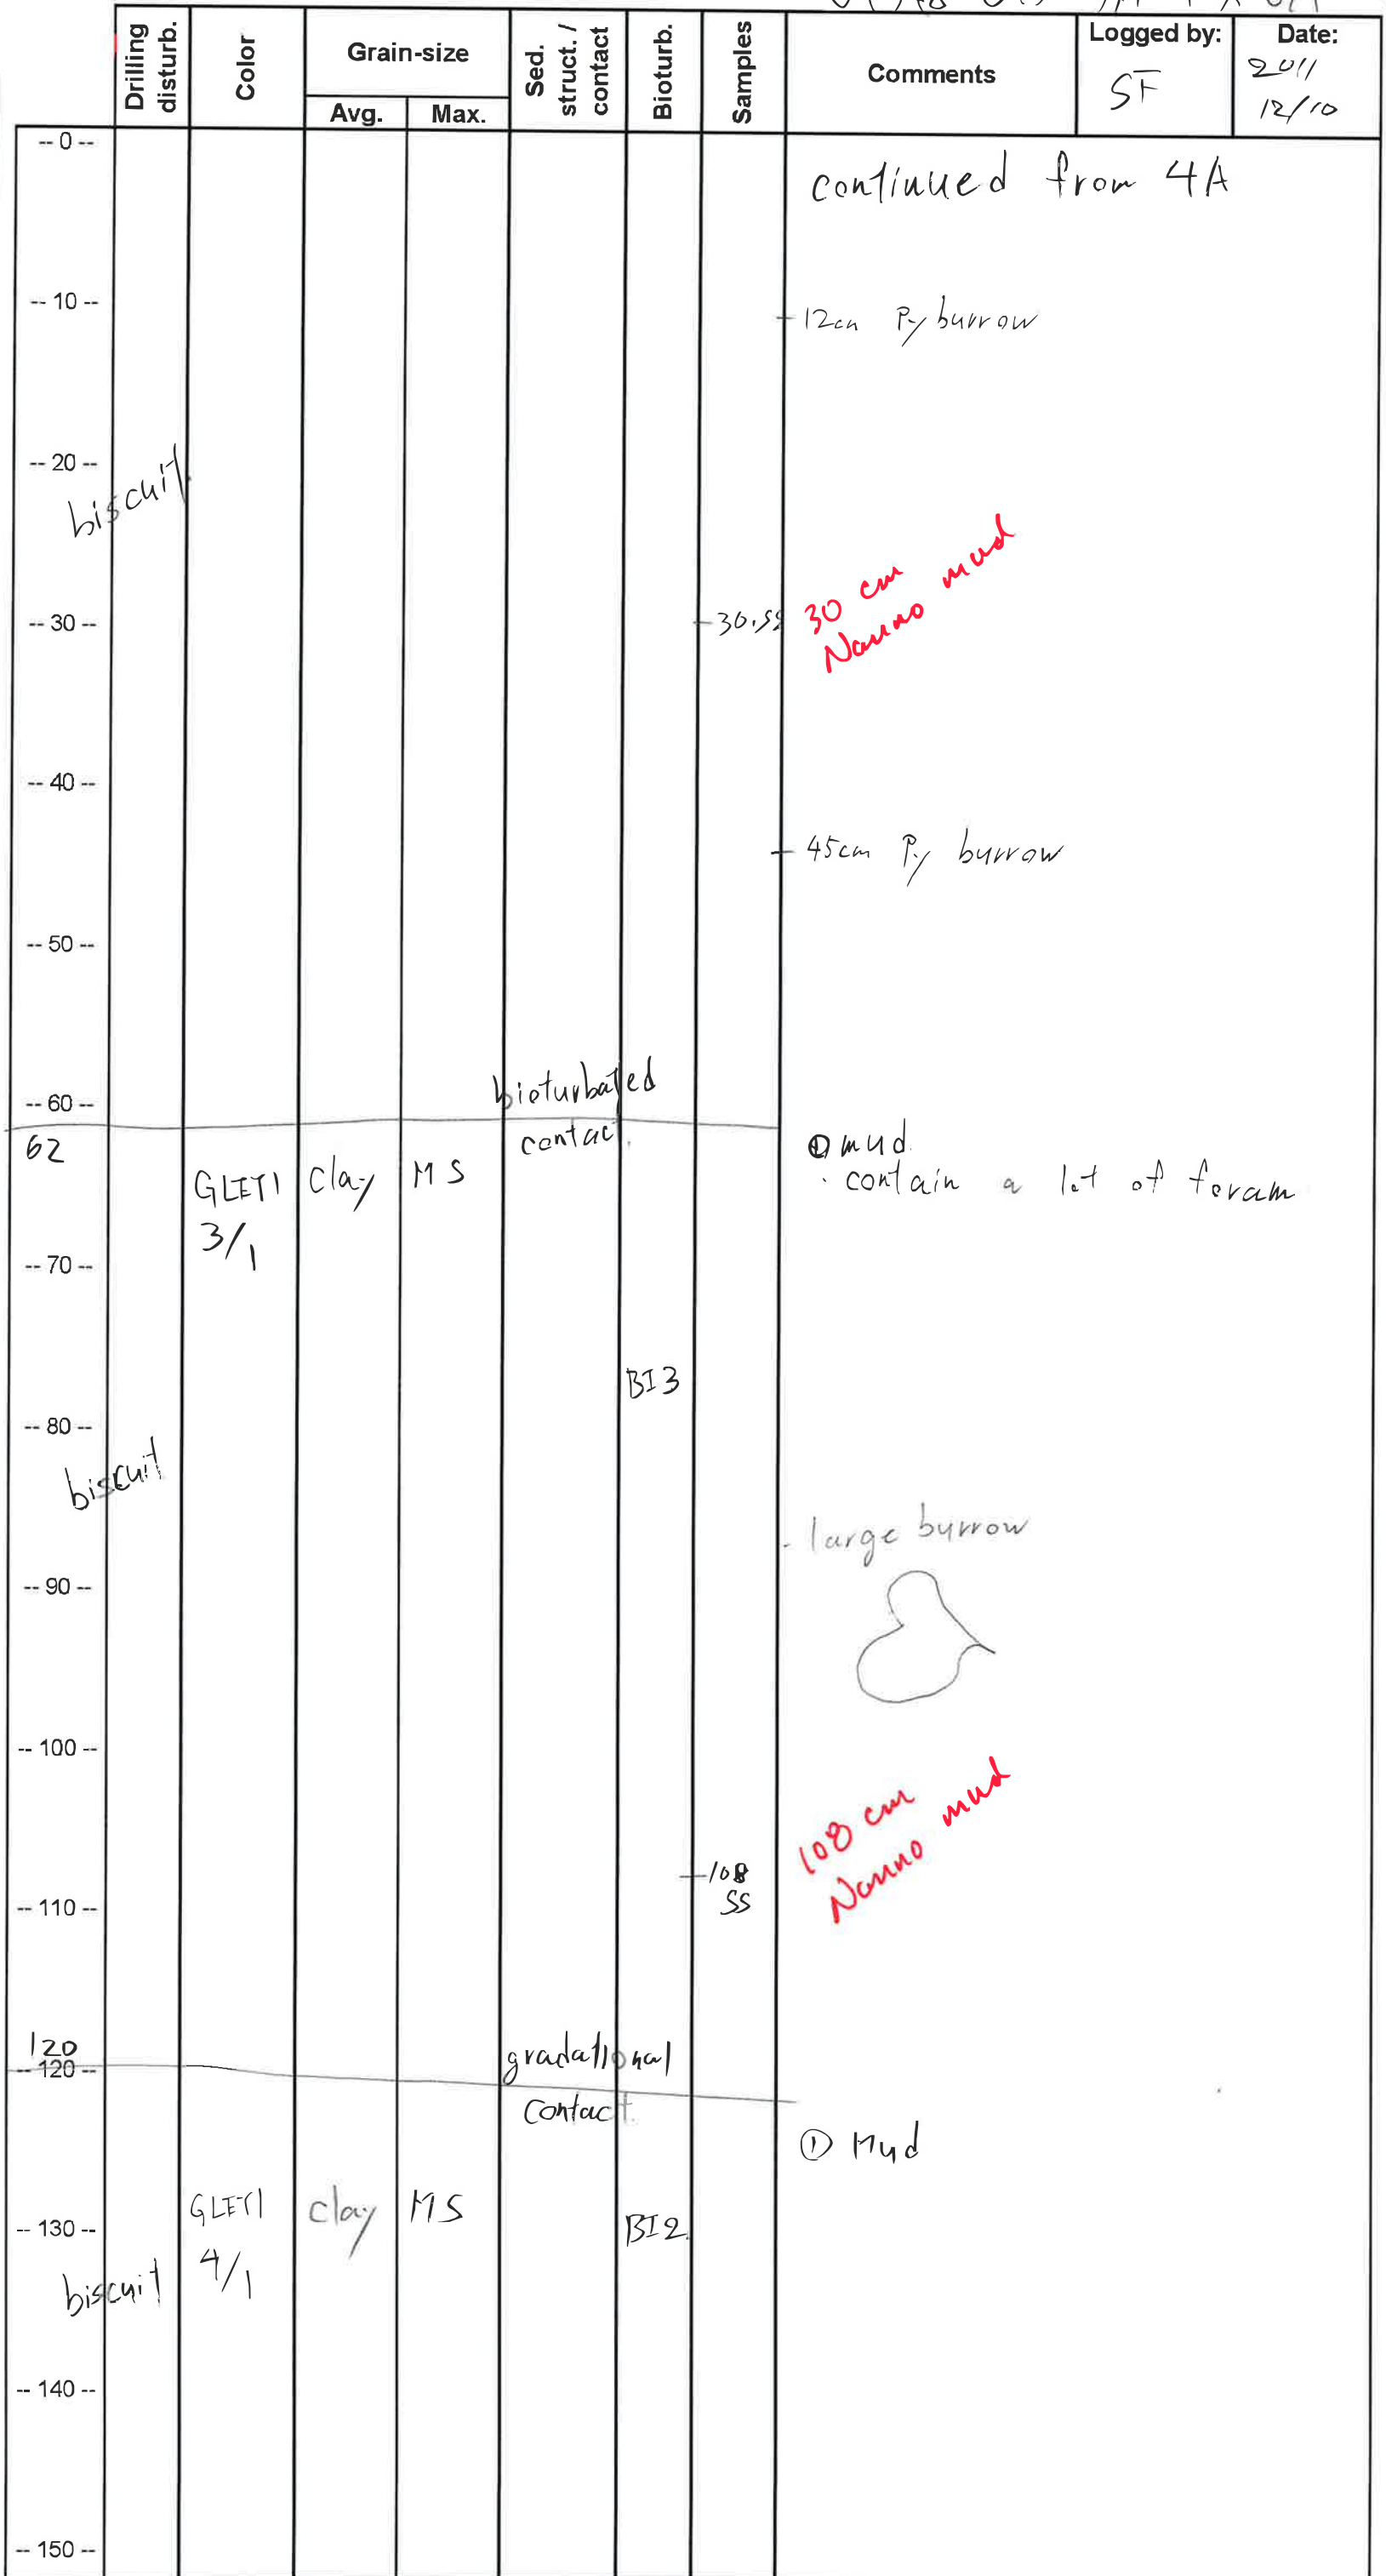 Drilling disturb.
Color
Grain-size
Avg.
Max.
Sed. struct. / contact
Bioturb.
Samples
Comments
Logged by:
SF
Date:
2011
12/10
-- 0 --
continued from 4A
-- 10 --
12cm Py burrow
-- 20 --
biscuit
-- 30 --
30.SS
30 cm
Nanno mud
-- 40 --
45cm Py burrow
-- 50 --
-- 60 --
bioturbated
contact.
62
① mud.
GLEY1 clay MS
· contain a lot of foram
3/1
-- 70 --
BI3
-- 80 --
biscuit
- large burrow
-- 90 --
-- 100 --
108 cm
Nanno mud
108
SS
-- 110 --
120
-- 120 --
gradational
contact.
① Mud
GLEY1 clay MS
-- 130 --
BI2.
4/1
biscuit
-- 140 --
-- 150 --